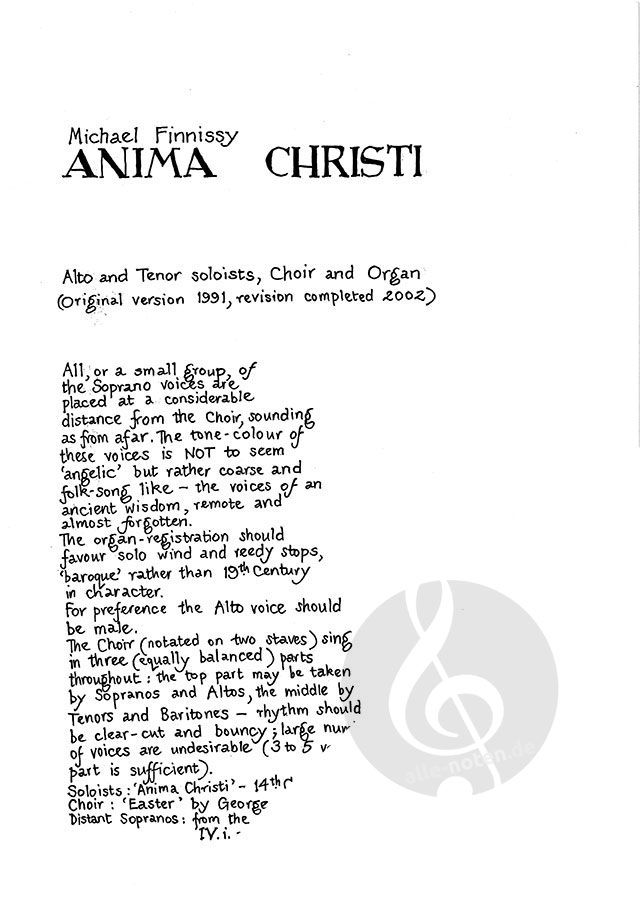 Michael Finnissy
ANIMA CHRISTI
Alto and Tenor soloists, Choir and Organ
(Original version 1991, revision completed 2002)
All, or a small group, of
the Soprano voices are
placed at a considerable
distance from the Choir, sounding
as from afar. The tone-colour of
these voices is NOT to seem
'angelic' but rather coarse and
folk-song like – the voices of an
ancient wisdom, remote and
almost forgotten.
The organ-registration should
favour solo wind and reedy stops,
'baroque' rather than 19th Century
in character.
For preference the Alto voice should
be male.
The Choir (notated on two staves) sing
in three (equally balanced) parts
throughout: the top part may be taken
by Sopranos and Altos, the middle by
Tenors and Baritones – rhythm should
be clear-cut and bouncy; large
of voices are undesirable (3 to 5
part is sufficient).
Soloists: 'Anima Christi' – 14th
Choir: 'Easter' by George
Distant Sopranos: from the
IV.i.-
alle-noten.de